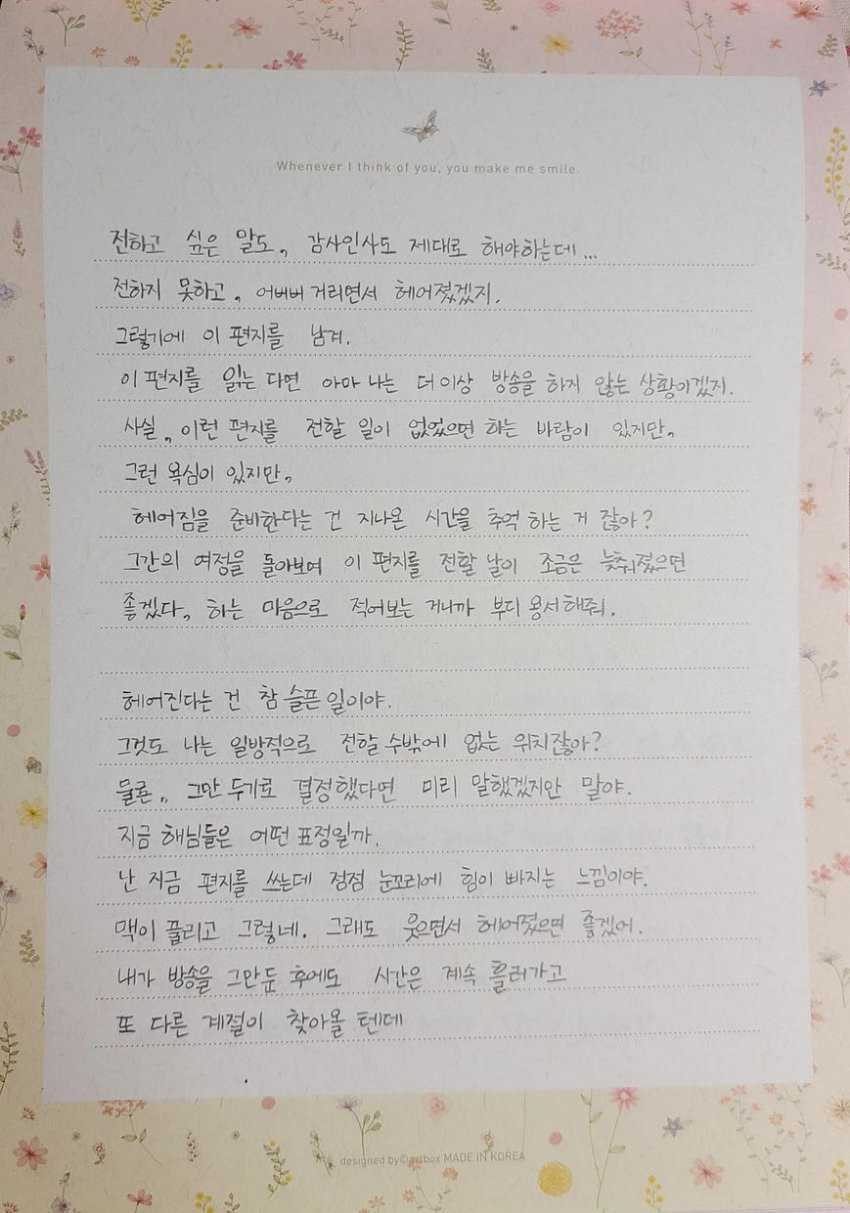 Whenever I think of you, you make me smile.
전하고 싶은 말도, 감사인사도 제대로 해야하는데...
전하지 못하고, 어버버 거리면서 헤어졌겠지.
그렇기에 이 편지를 남겨.
이 편지를 읽는 다면 아마 나는 더 이상 방송을 하지 않는 상황이겠지.
사실, 이런 편지를 전할 일이 없었으면 하는 바람이 있지만,
그런 욕심이 있지만,
헤어짐을 준비한다는 건 지나온 시간을 추억 하는 거 잖아?
그간의 여정을 돌아보며 이 편지를 전할 날이 조금은 늦춰졌으면
좋겠다, 하는 마음으로 적어보는 거니까 부디 용서해줘.
헤어진다는 건 참 슬픈 일이야.
그것도 나는 일방적으로 전할 수밖에 없는 위치잖아?
물론, 그만 두기로 결정했다면 미리 말했겠지만 말야.
지금 해님들은 어떤 표정일까.
난 지금 편지를 쓰는데 점점 눈꼬리에 힘이 빠지는 느낌이야.
맥이 풀리고 그렇네. 그래도 웃으면서 헤어졌으면 좋겠어.
내가 방송을 그만둔 후에도 시간은 계속 흘러가고
또 다른 계절이 찾아올 텐데
designed by©artbox MADE IN KOREA